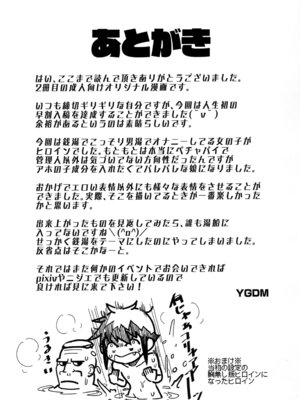 あとがき
はい、ここまで読んで頂きありがとうございました。
2冊目の成人向けオリジナル漫画です。
いつも締切ギリギリな自分ですが、今回は人生初の
早割入稿を達成することができました(´v`)
余裕があるというのは素晴らしいです。
今回は銭湯でこっそり男湯でオナニーしてる女の子が
ヒロインでした。もともとは本当にペチャパイで
管理人以外は気づいてない方向性だったんですが
アホの子成分を入れたくてバレバレな娘になりました。
おかげでエロい表情以外にも様々な表情をさせることが
できました。実際、そこを描いてるときが一番楽しかっ
たかと思います。
出来上がったものを見返してみたら、誰も湯船に
入ってないですね＼(^o^)／
せっかく銭湯をテーマにしたのにやってしまいました。
反省点はそこかなーと。
それではまた何かのイベントでお会いできれば
pixivやニジエでも更新しているので
良ければ見に来て下さい！
YGDM
※おまけ※
当初の設定の
ヒロインに
なったヒロイン